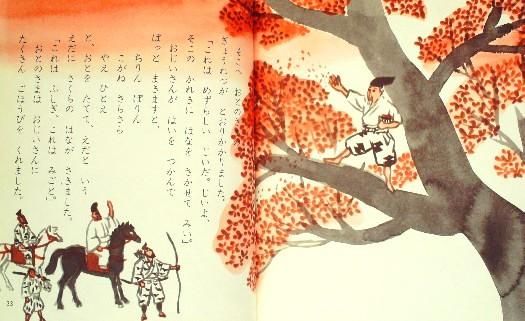 そこへ おとのさまの
ぎょうれつが とおりかかりました。
「これは めずらしい じいだ。じいよ、
そこの かれきに はなを さかせて みい。」
おじいさんが はいを つかんで
ぱっと まきますと、
ちりん ぽりん
こがね さらさら
やえ ひとえ
と、おとを たてて、えだと いう
えだに さくらの はなが さきました。
「これは ふしぎ、これは みごと。」
おとのさまは おじいさんに
たくさん ごほうびを くれました。
33